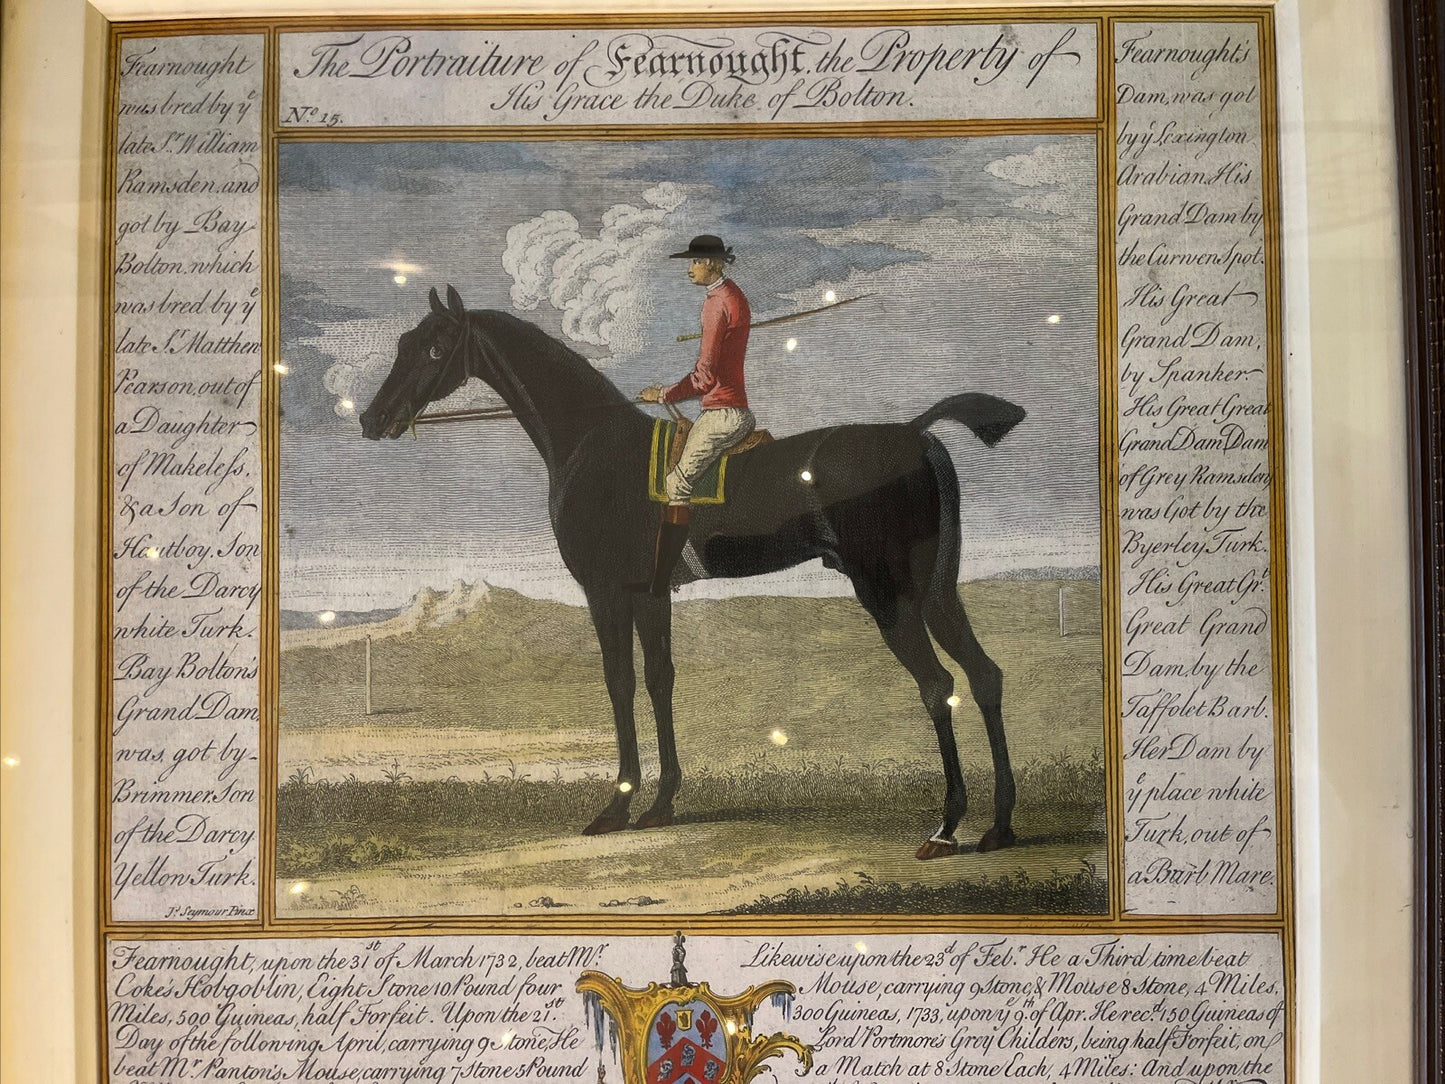 The Portraiture of Fearnought, the Property of
His Grace the Duke of Bolton.
No. 15.
Fearnought
was bred by ye
late Sr. William
Ramsden, and
got by Bay
Bolton, which
was bred by ye
late Sr. Matthew
Pearson, out of
a Daughter
of Makeless,
& a Son of
Hautboy, Son
of the Darcy
white Turk.
Bay Bolton's
Grand Dam,
was got by
Brimmer, Son
of the Darcy
Yellow Turk.
Js. Seymour Pinx
Fearnought's
Dam, was got
by ye Lexington
Arabian, His
Grand Dam by
the Curwen Spot.
His Great
Grand Dam,
by Spanker.
His Great Great
Grand Dam Dam
of Grey Ramsden,
was Got by the
Byerley Turk.
His Great Grt.
Great Grand
Dam, by the
Taffolet Barb.
Her Dam by
ye place white
Turk, out of
a Barb Mare.
Fearnought, upon the 31st of March 1732, beat Mr.
Coke's Hobgoblin, Eight Stone 10 Pound four
Miles, 500 Guineas, half Forfeit. Upon the 21st.
Day of the following April, carrying 9 Stone, He
beat Mr. Panton's Mouse, carrying 7 Stone 5 Pound
Likewise upon the 23d of Febr. He a Third time beat
Mouse, carrying 9 Stone, & Mouse 8 Stone, 4 Miles,
300 Guineas, 1733, upon ye 9th. of Apr. He recd. 150 Guineas of
Lord Portmore's Grey Childers, being half Forfeit, on
a Match at 8 Stone Each, 4 Miles: And upon the